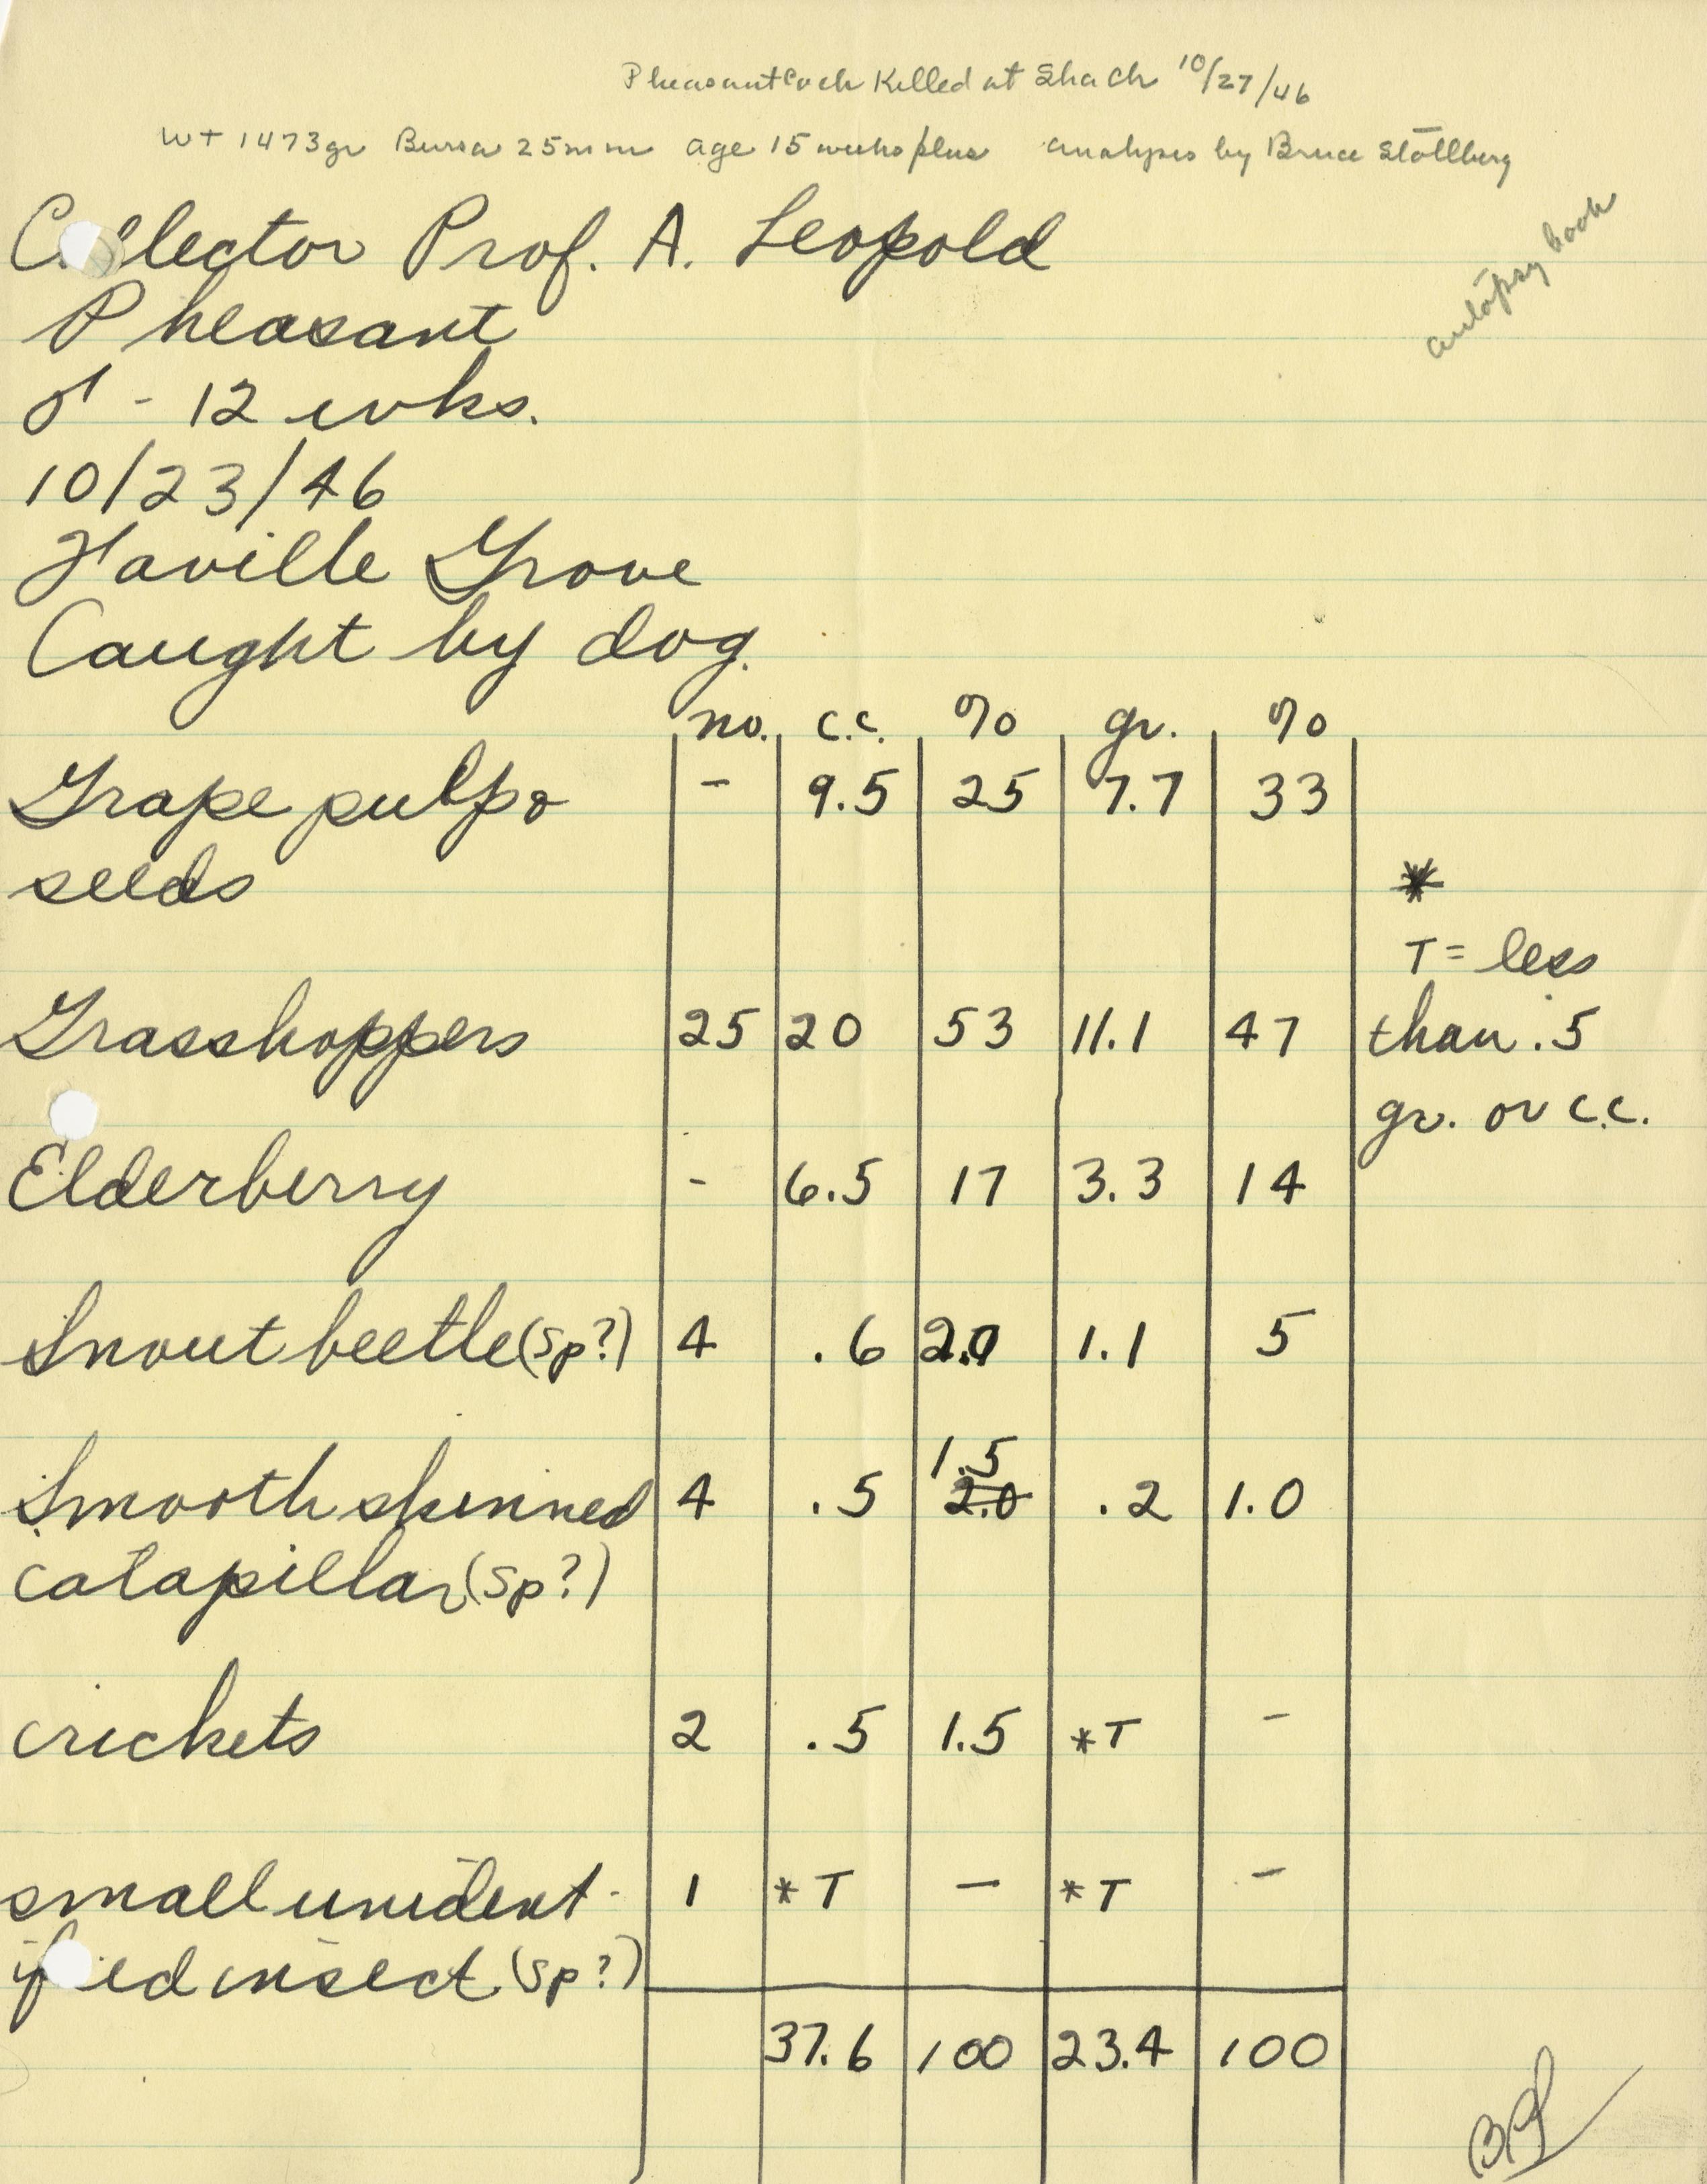 Pheasant Cock Killed at Shack 10/27/46
Wt 1473gr Bursa 25mm age 15 weeks plus analysis by Bruce Stollberg
autopsy book
Collector Prof. A. Leopold
Pheasant
♂ - 12 wks.
10/23/46
Faville Grove
Caught by dog.
no. c.c. % gr. %
Grape pulp & - 9.5 25 7.7 33
seeds
*
T = less
Grasshoppers 25 20 53 11.1 47 than .5
gr. or c.c.
Elderberry - 6.5 17 3.3 14
Snout beetle (sp?) 4 .6 2.0 1.1 5
1.5
Smooth skinned 4 .5 2.0 .2 1.0
catapillar (sp?)
crickets 2 .5 1.5 *T -
small unident- 1 *T - *T -
ified insect (sp?)
37.6 100 23.4 100